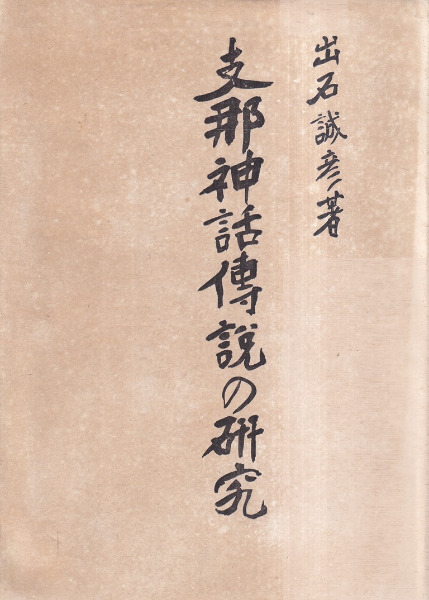 出石誠彦著
支那神話傳說の研究